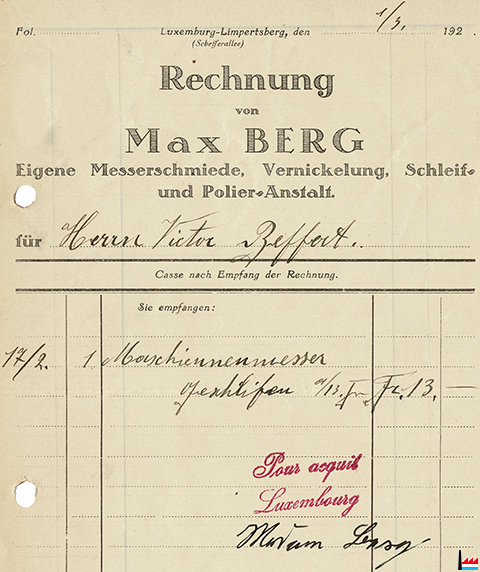 Fol. Luxemburg-Limpertsberg, den 1/3. 192
(Schefferallee)
Rechnung
von
Max BERG
Eigene Messerschmiede, Vernickelung, Schleif-
und Polier-Anstalt.
für Herrn Victor Beffort.
Casse nach Empfang der Rechnung.
Sie empfangen:
17/2. 1 Maschiennenmesser
geschlifen a/13. Fr. Fr. 13. —
Pour acquit
Luxembourg
Madam Berg